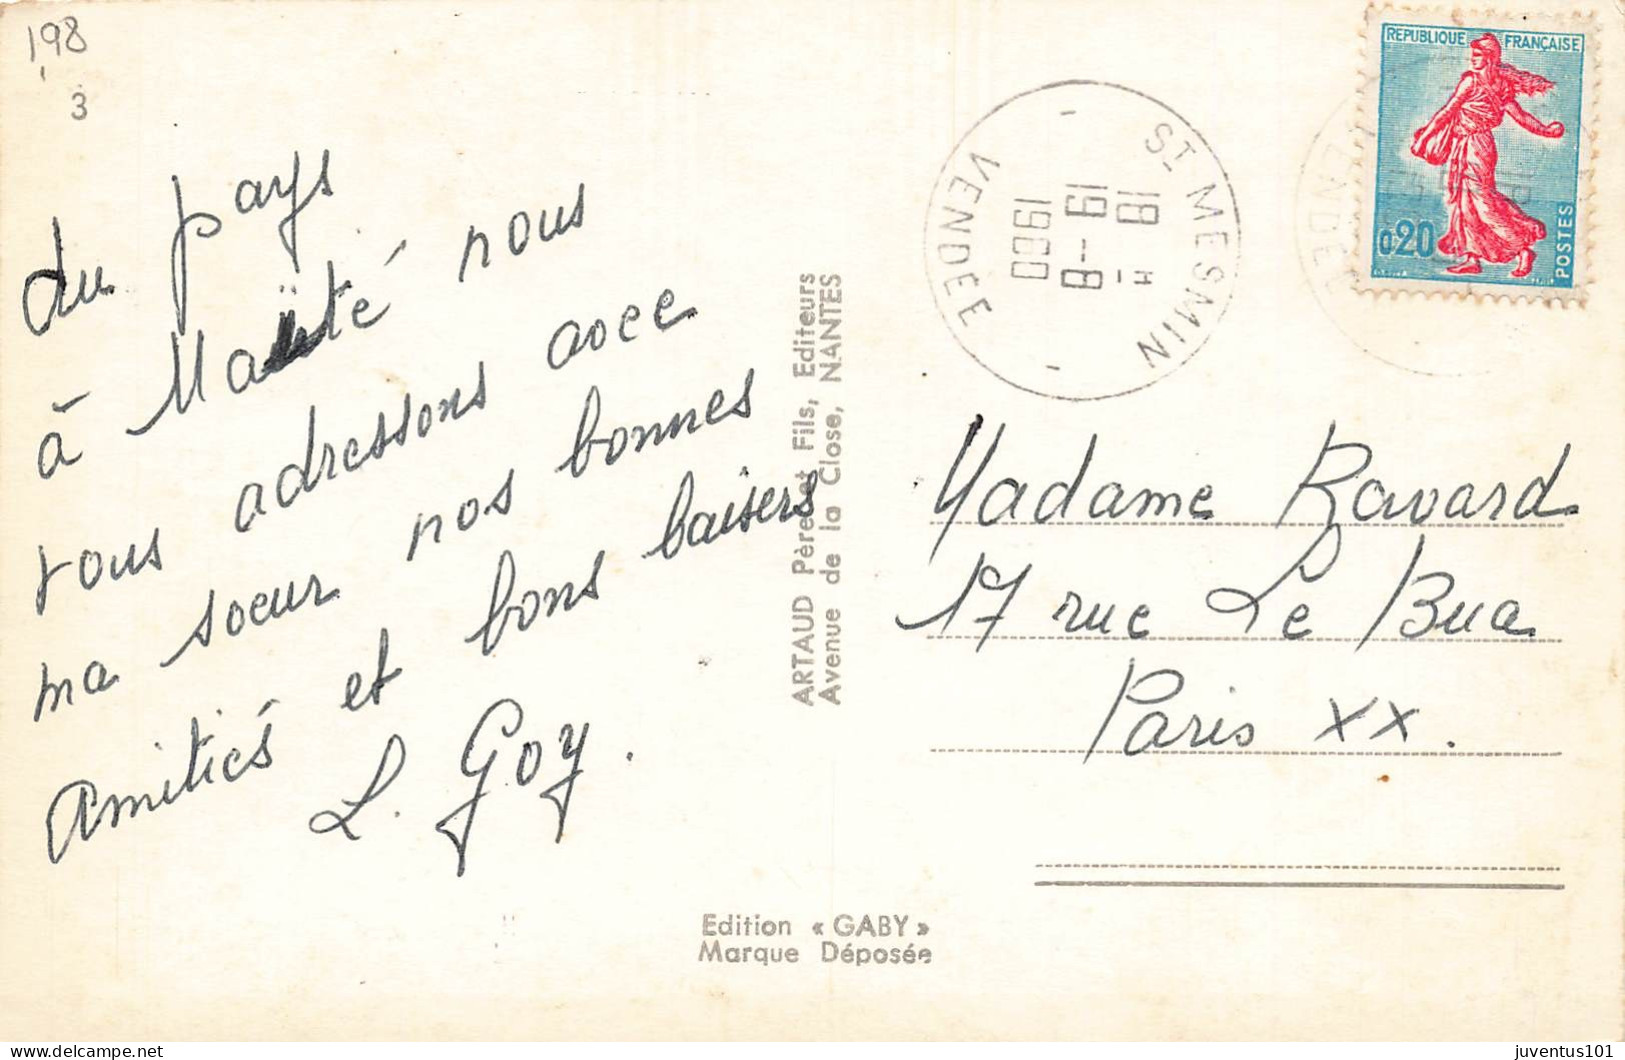 198
3
du pays
à Maïté nous
vous adressons avec
ma soeur nos bonnes
Amitiés et bons baisers
L. Goy.
ARTAUD Père et Fils, Editeurs
Avenue de la Close, NANTES
Edition « GABY »
Marque Déposée
ST MESMIN
18 H
19 - 8
1960
- VENDÉE -
REPUBLIQUE FRANÇAISE
0,20
POSTES
VENDÉE
Madame Ravard
17 rue Le Bua
Paris XX.
juventus101